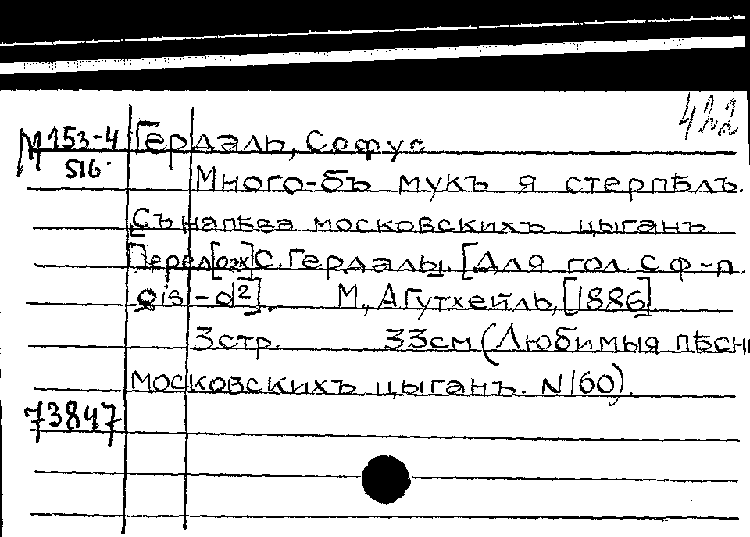 422
М 153-4
516
Гердаль, Софус
Много-бъ мукъ я стерпѣлъ.
Съ напѣва московскихъ цыганъ
Перел[ож] С. Гердаль. [Для гол. с ф-п.
gis - d²]. М., А Гутхейль, [1886]
3 стр. 33 см (Любимыя пѣсн
московскихъ цыганъ. N 160).
73847